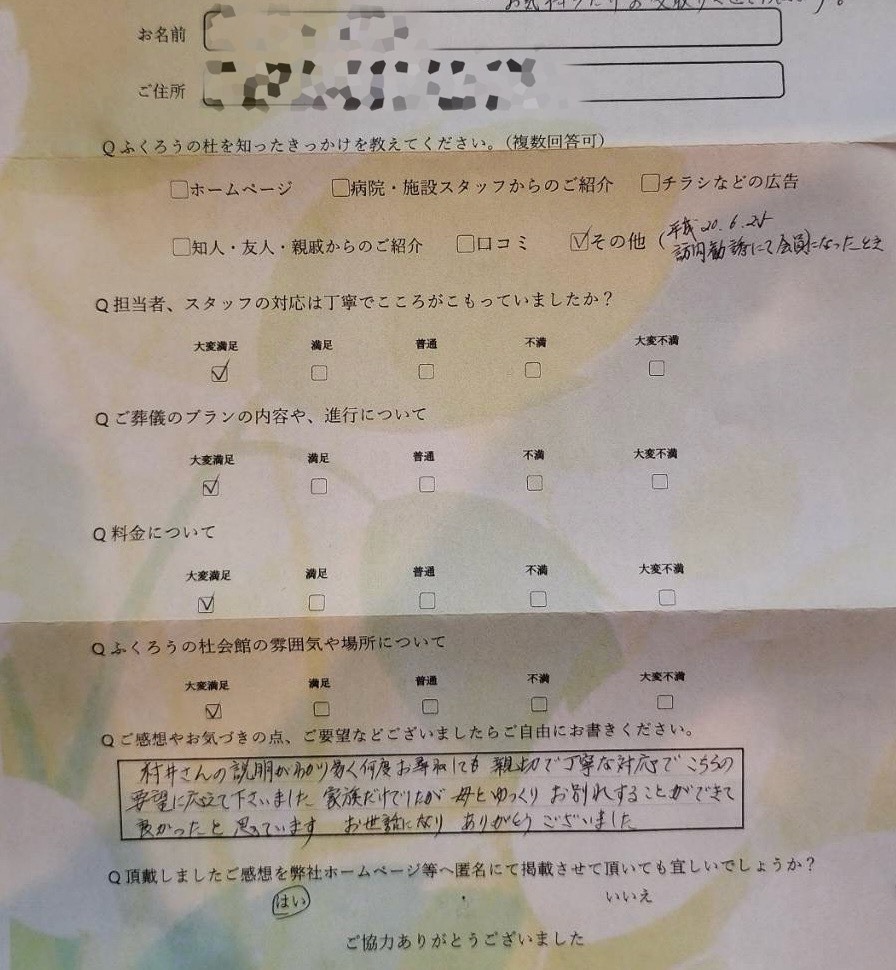 お名前
ご住所
Qふくろうの杜を知ったきっかけを教えてください。(複数回答可)
□ホームページ □病院・施設スタッフからのご紹介 □チラシなどの広告
平成20.6.25
□知人・友人・親戚からのご紹介 □口コミ ☑その他(訪問勧誘にて会員になったとき
Q担当者、スタッフの対応は丁寧でこころがこもっていましたか?
大変満足 満足 普通 不満 大変不満
☑ □ □ □ □
Qご葬儀のプランの内容や、進行について
大変満足 満足 普通 不満 大変不満
☑ □ □ □ □
Q料金について
大変満足 満足 普通 不満 大変不満
☑ □ □ □ □
Qふくろうの杜会館の雰囲気や場所について
大変満足 満足 普通 不満 大変不満
☑ □ □ □ □
Qご感想やお気づきの点、ご要望などございましたらご自由にお書きください。
村井さんの説明がわかり易く何度お尋ねしても親切で丁寧な対応でこちらの
要望に応えて下さいました 家族だけでしたが 母とゆっくり お別れすることができて
良かったと思っています お世話になり ありがとうございました
Q頂戴しましたご感想を弊社ホームページ等へ匿名にて掲載させて頂いても宜しいでしょうか?
はい ・ いいえ
ご協力ありがとうございました